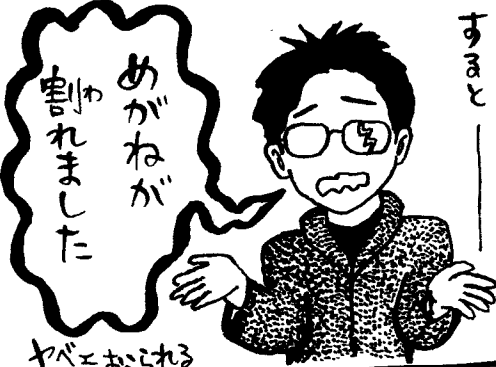 すると——
めがねが
割れました
わ
ヤベェおいられる